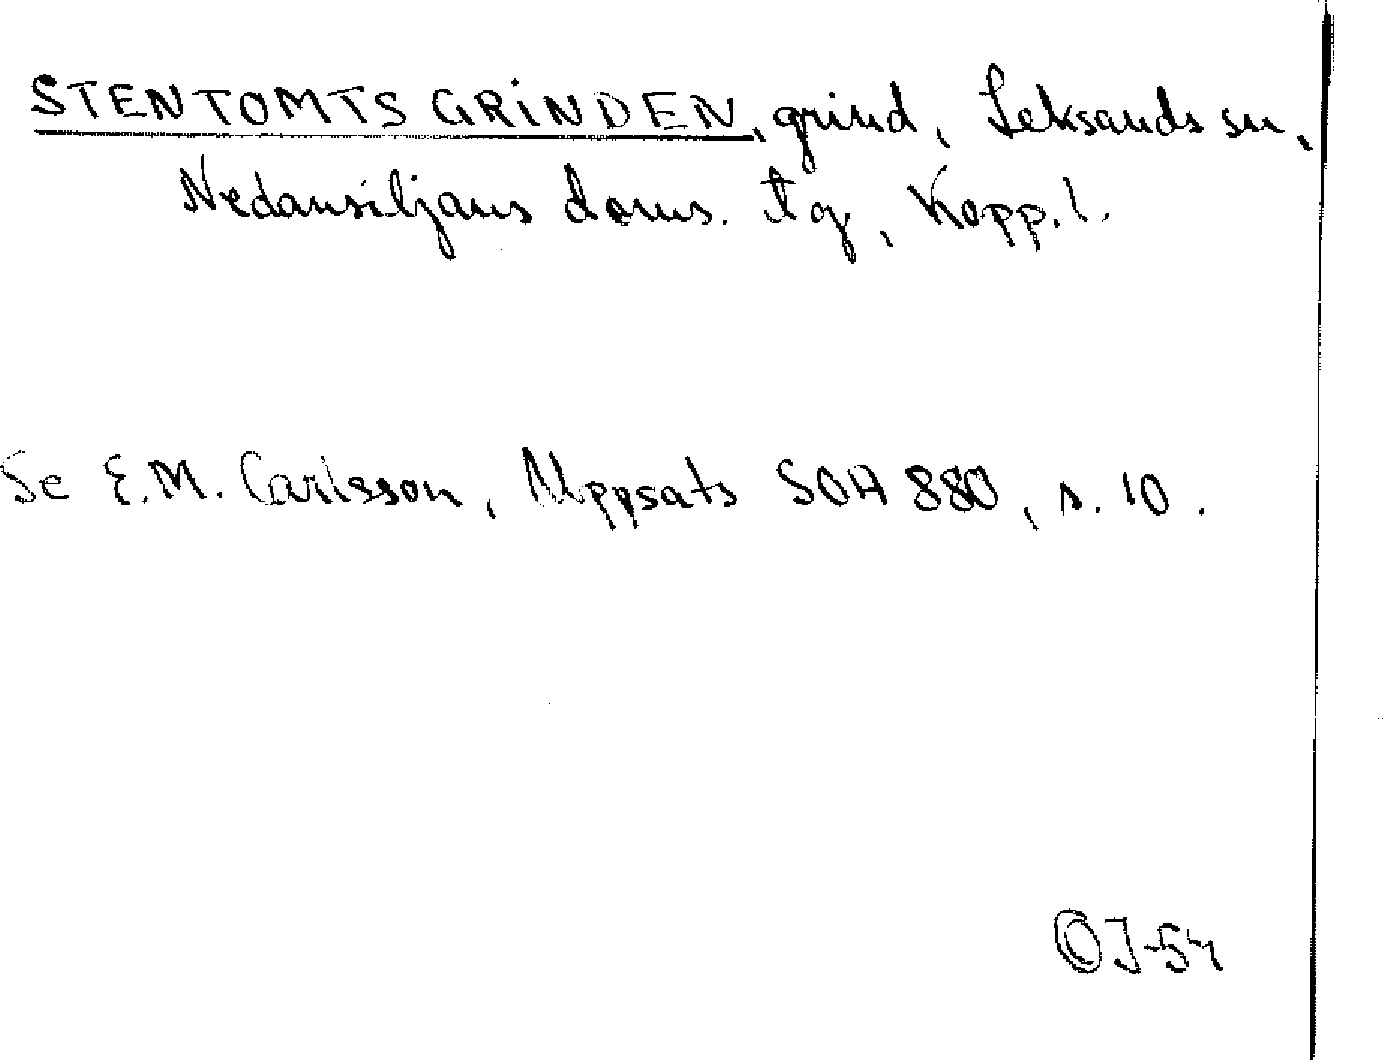 STENTOMTSGRINDEN, grind, Leksands sn,
Nedansiljans doms. tg, Kopp. l.
Se E.M. Carlsson, Uppsats SOA 880, s. 10.
OJ-54